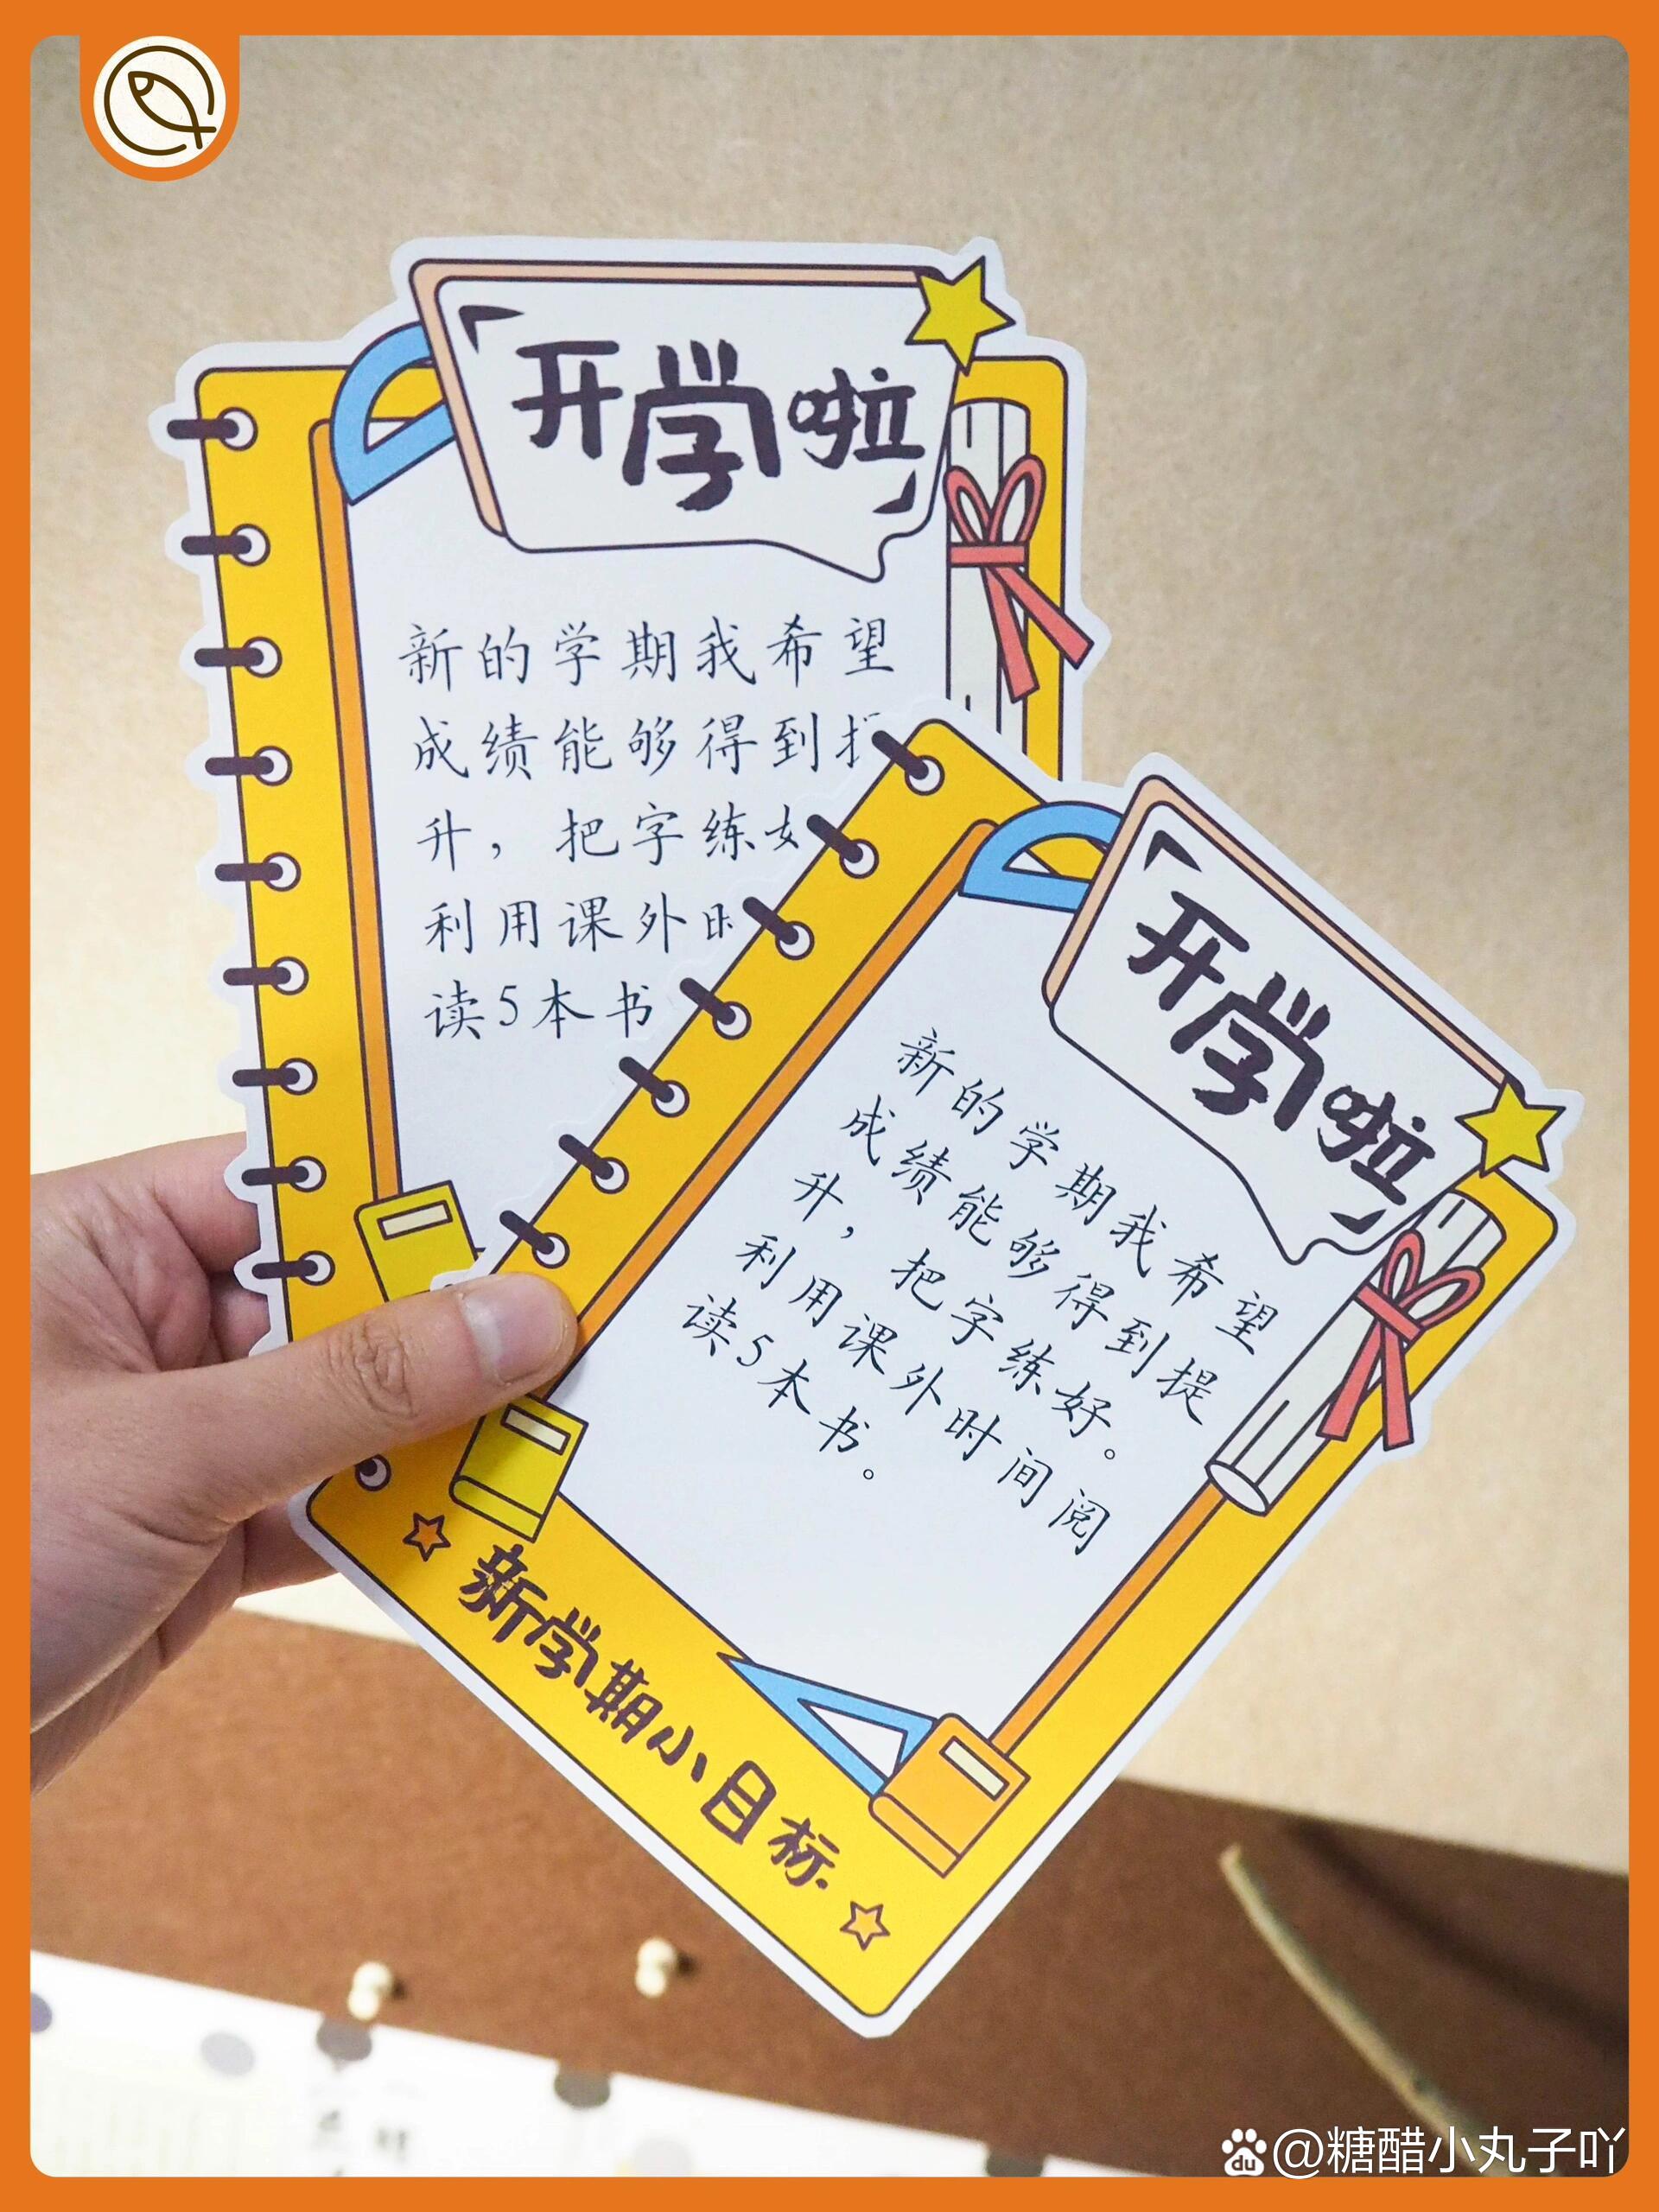 开学啦
新的学期我希望
成绩能够得到
升，把字练
利用课外
读5本书
开学啦
新的学期我希望
成绩能够得到提
升，把字练好。
利用课外时间阅
读5本书。
新学期小目标
du @糖醋小丸子吖